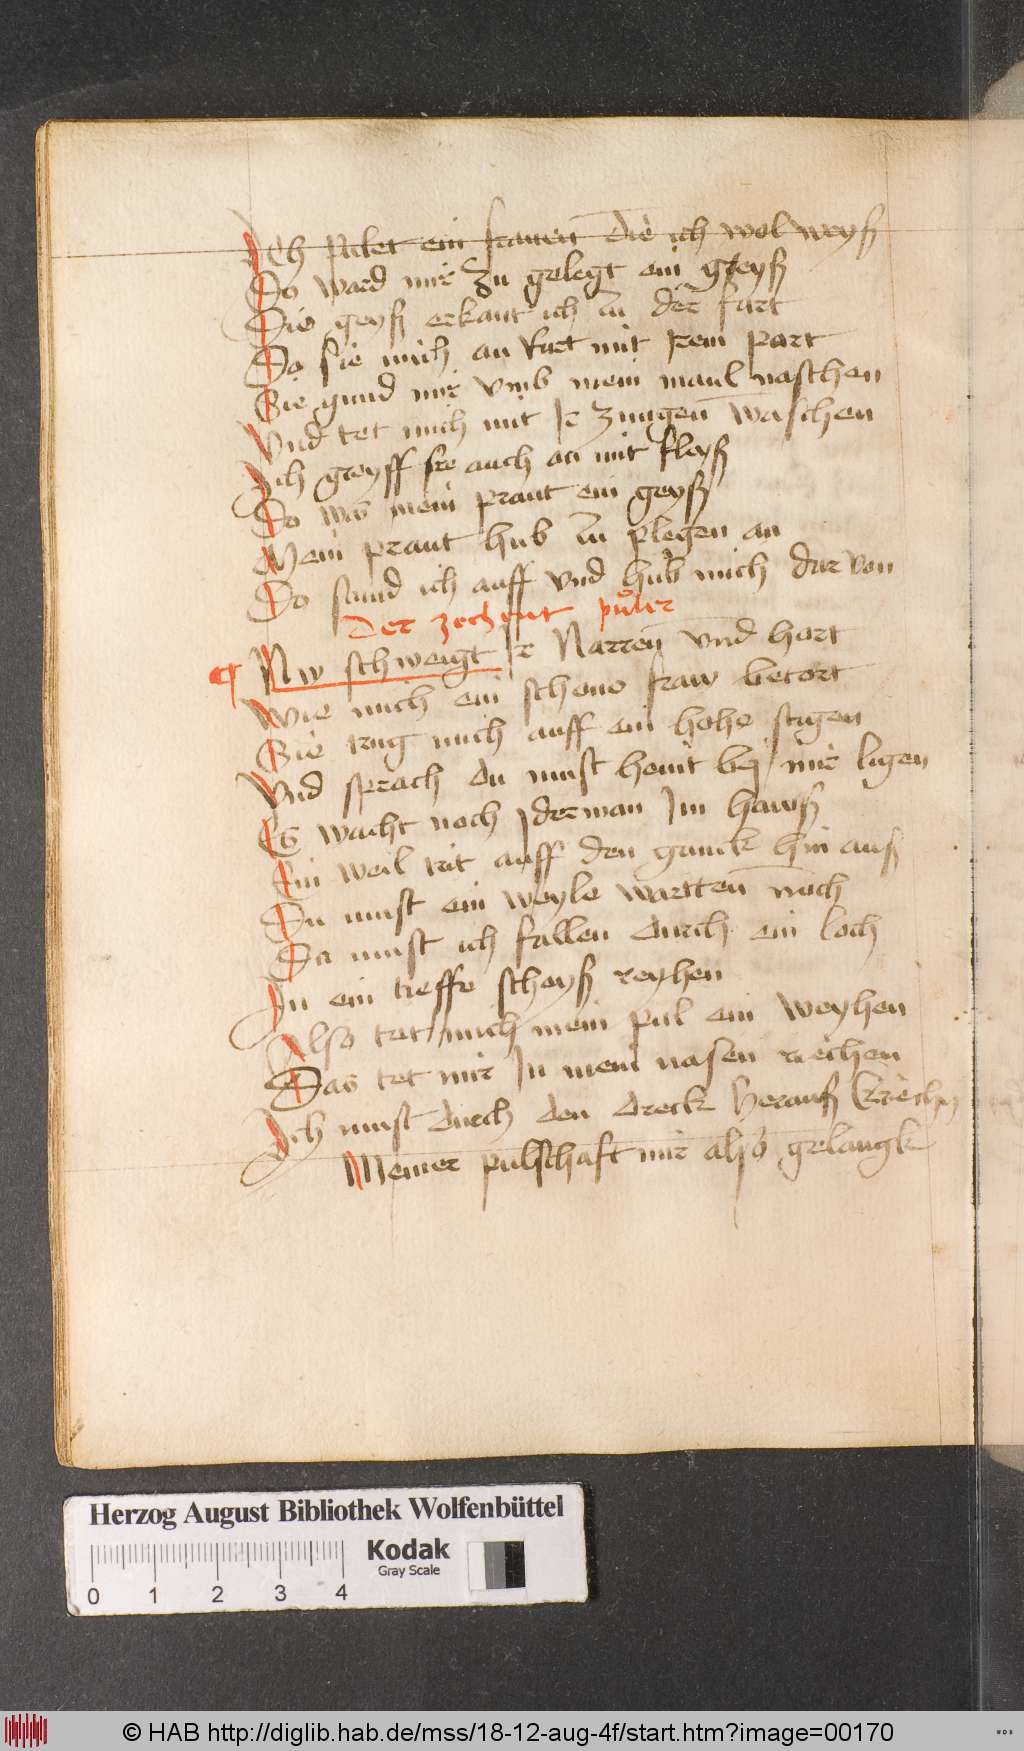 Ich pulet ein frauen die ich wol weyß
Do ward mir zu gelegt ein greyß
Die geyß erkant ich in der fart
Do sie mich an rurt mit Irem part
Sie gund mir vmb mein maul naschen
Vnd tet mich mit Ir zungen waschen
Ich greyff sie auch an mit fleyß
Do was mein praut ein geyß
Mein praut hub zu plegen an
Do stund ich auff vnd hub mich dar von
Der zechent půler
¶ Nw schweigt Ir Narren vnd hort
Wie mich ein schone fraw betort
Sie trug mich auff ein hohe stigen
Vnd sprach du must heint bej mir ligen
Es wacht noch Iderman Im hawß
Ein weil trit auff den ganck hin auß
Du must ein weyle wartten noch
Da must ich fallen durch ein loch
In ein tieffe scheyß reyhen
Also tett mich mein pul ein weyhen
Das tet mir In mein nasen riechen
Ich must durch den dreck herauß kriechen
Meiner pulschaft mir also gelangk
Herzog August Bibliothek Wolfenbüttel
Kodak
Gray Scale
0 1 2 3 4
© HAB http://diglib.hab.de/mss/18-12-aug-4f/start.htm?image=00170